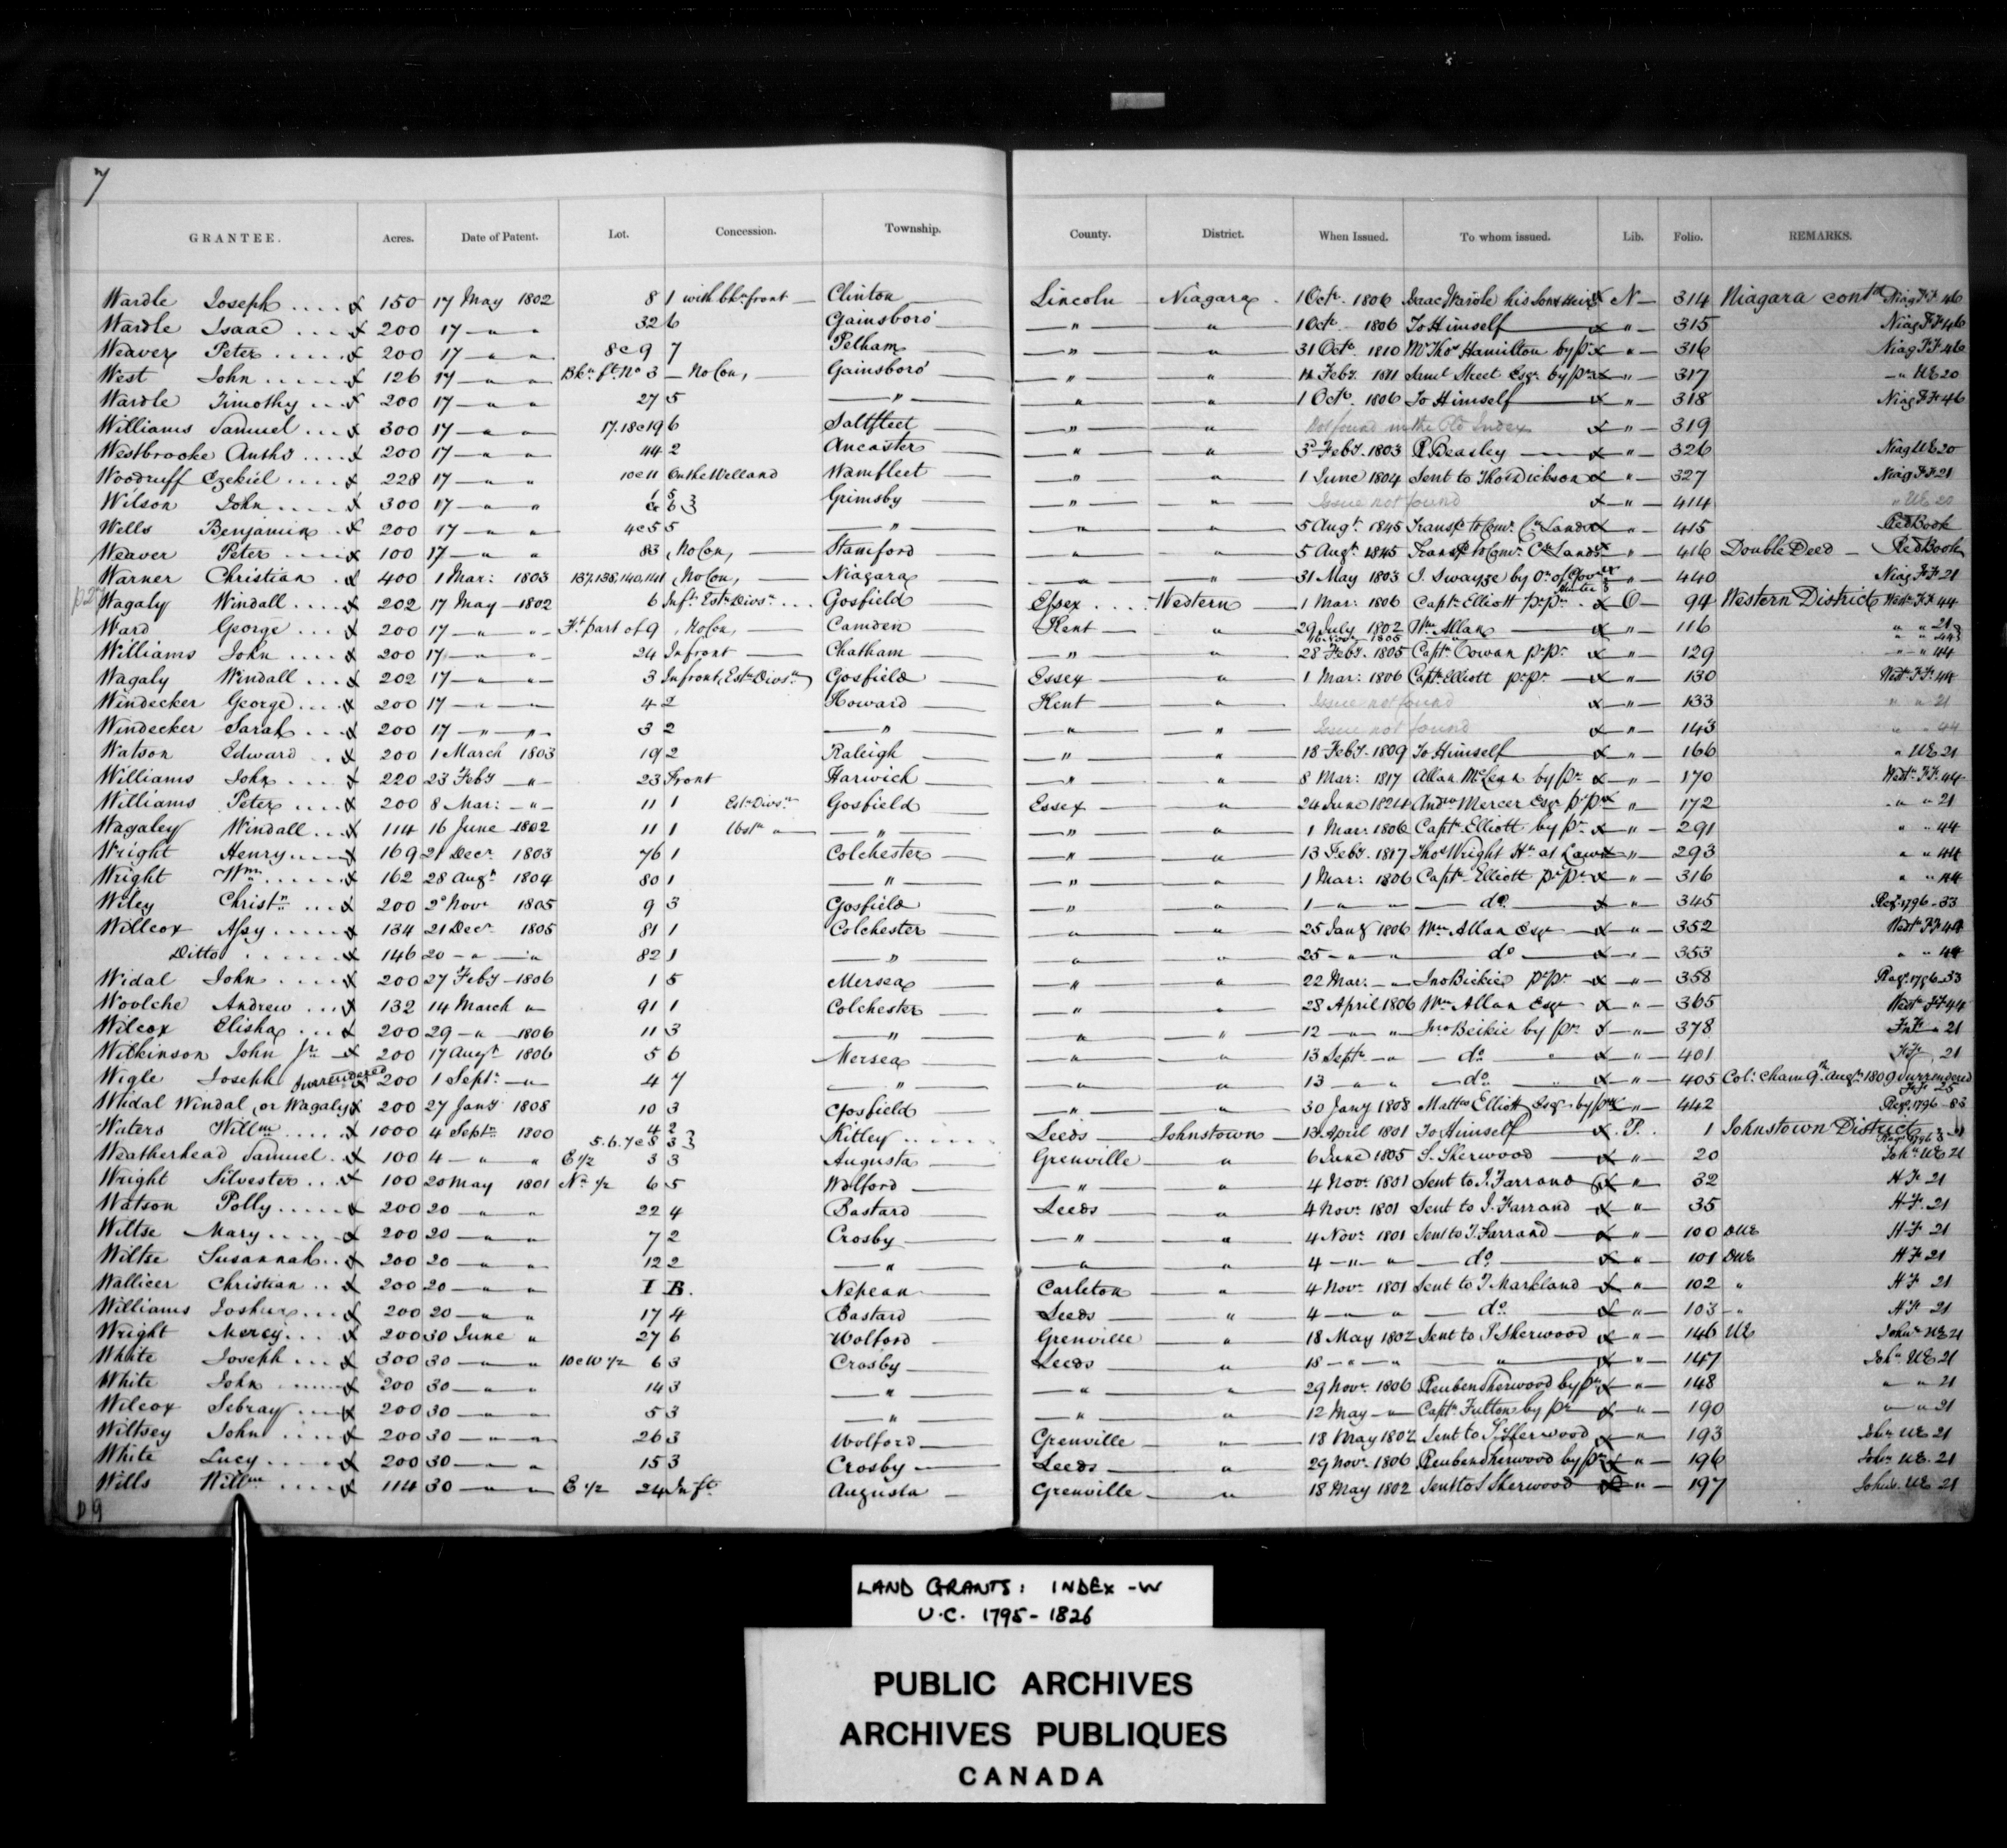 7
GRANTEE. Acres. Date of Patent. Lot. Concession. Township. County. District. When Issued. To whom issued. Lib. Folio. REMARKS.
Wardle Joseph .... x 150 17 May 1802 8 1 with bkn front — Clinton Lincoln — Niagara 1 Octr 1806 Isaac Wardle his son & Heir x N — 314 Niagara contd Niag FF 46
Wardle Isaac ... x 200 17 — " " 32 6 Gainsboro' — " — " 1 Octr 1806 To Himself — x " — 315 Niag FF 46
Weaver Peter ..... x 200 17 — " " 8 & 9 7 Pelham — " — " 31 Octr 1810 Mr Thos Hamilton by pr x " — 316 Niag FF 46
West John ..... x 126 17 — " " Bkn ft No 3 — No Con, — Gainsboro' — " — " Feby 1811 Saml Street Esqr by pr x " — 317 — " UE 20
Wardle Timothy ... x 200 17 — " " 27 5 — " — " " 1 Octr 1806 To Himself — x " — 318 Niag FF 46
Williams Samuel ... x 300 17 — " " 17.18 & 19 6 Saltfleet — " — " Not found in the Old Index x " — 319
Westbrooke Anthy .... x 200 17 — " " 44 2 Ancaster — " — " 3 Feby 1803 R. Beasley — x " — 326 Niag UE 20
Woodruff Ezekiel .... x 228 17 — " " 10 & 11 On the Welland Wainfleet — " — " 1 June 1804 Sent to Thos Dickson x " — 327 Niag FF 21
Wilson John .... x 300 17 — " " Grimsby — " — " Issue not found x — " — 414 " UE 20
Wells Benjamin . x 200 17 — " " 4 & 5 5 — " — " " 5 Augt 1845 Transfd to Comr Cn Lands x " — 415 Red Book
Weaver Peter .... x 100 17 — " " 83 No Con, — Stamford — " " 5 Augt 1845 Transfd to Comr Cn Lands x " — 416 Double Deed — Red Book
Warner Christian . x 400 1 Mar: 1803 137,138,140,141 No Con, — Niagara — " " 31 May 1803 I. Swayze by Or of Govr Hunter x — " — 440 Niag FF 21
Wagaly Windall .... x 202 17 May — 1802 6 Inft Estn Divsn ... Gosfield Essex .... Western — 1 Mar: 1806 Captn Elliott pr pr . x O — 94 Western District Westn FF 44
Ward George ... x 200 17 — " " Ft part of 9 No Con, — Camden Kent — " 29 July 1802 Wm Allan — x " — 116 " " 21
16 Novr 1805 " " 44
Williams John .... x 200 17 — " " 24 In front — Chatham — " — " 28 Feby 1805 Captn Cowan pr pr x — " — 129 " " 44
Wagaly Windall ... x 202 17 — " " 3 In front, Estn Divsn Gosfield Essex — " 1 Mar: 1806 Captn Elliott pr pr — x — " — 130 Westn FF 44
Windecker George ... x 200 17 — " — " 4 2 Howard — Kent — " Issue not found x — " — 133 " " 21
Windecker Sarah ... x 200 17 — " — " 3 2 — " — " " Issue not found x — " — 143 " " 44
Watson Edward .. x 200 1 March 1803 19 2 Raleigh — " — " 18 Feby 1809 To Himself — x — " — 166 " UE 21
Williams John .... x 220 23 Feby — " 23 Front Harwich — " — " 8 Mar: 1817 Allan McLean by pr x — " — 170 Westn FF 44
Williams Peter .... x 200 8 Mar: — " 11 1 Estn Divsn Gosfield Essex — " 24 June 1824 Andrw Mercer Esqr pr pr x " — 172 " " 21
Wagaley Windall .. x 114 16 June 1802 11 1 Westn " — " — " " 1 Mar: 1806 Captn Elliott by pr x — " — 291 " " 44
Wright Henry .... x 169 21 Decr 1803 76 1 Colchester — " — " 13 Feby 1817 Thos Wright Hr at Law x " — 293 " " 44
Wright Wm ..... x 162 28 Augt 1804 80 1 — " — " — " 1 Mar: 1806 Captn Elliott pr pr x — " — 316 " " 44
Wiley Christn ... x 200 2 Novr 1805 9 3 Gosfield — " — " 1 — " — " — do — x — " — 345 Reg. 1796–33
Willcox Assy ..... x 134 21 Decr 1805 81 1 Colchester — " — " 25 Jany 1806 Wm Allan Esqr — x — " — 352 Westn FF 44
Ditto ..... x 146 20 — " — " 82 1 — " — " — " 25 — " — " — do — x — " — 353 " " 44
Widal John .... x 200 27 Feby — 1806 1 5 Mersea — " — " 22 Mar: — " Jno Bickie pr pr x — " — 358 Reg. 1796–33
Woolche Andrew ... x 132 14 March " 91 1 Colchester — " — " 28 April 1806 Wm Allan Esqr — x — " — 365 Westn FF 44
Wilcox Elisha ... x 200 29 — " — 1806 11 3 — " — " — " 12 — " — " Jno Beikie by pr x — " — 378 FF " 21
Wilkinson John Jr — x 200 17 Augt 1806 5 6 Mersea — " — " 13 Septr — " — do — " x — " — 401 FF 21
Wigle Joseph Surrendered x 200 1 Septr — " 4 7 — " — " — " 13 — " " — do " x — " — 405 Col: Cham 9th Augt 1809 Surrendered FF 25
Widal Windal, or Wagaly x 200 27 Jany 1808 10 3 Gosfield — " — " 30 Jany 1808 Matthw Elliott Esqr by pr x " — 442 Reg. 1796–33
Waters Willm ..... x 1000 4 Septr 1800 4 2 5.6.7 & 8 3 Kitley ...... Leeds — Johnstown — 13 April 1801 To Himself — x . P. . 1 Johnstown District
Weatherhead Samuel . x 100 4 — " " E 1/2 3 3 Augusta — Grenville — " 6 June 1805 S. Sherwood — x " — 20 Johns UE 21
Wright Silvester ... x 100 20 May 1801 No 1/2 6 5 Wolford — " — " 4 Novr 1801 Sent to J. Farrand x " — 32 HF 21
Watson Polly ..... x 200 20 — " " 22 4 Bastard — Leeds — " 4 Novr 1801 Sent to J. Farrand x — " — 35 HF 21
Wiltse Mary ..... x 200 20 — " " 7 2 Crosby — " — " 4 Novr 1801 Sent to J. Farrand — x — " — 100 DUE HF 21
Wiltse Susannah .. x 200 20 — " " 12 2 — " — " " 4 — " — " — do x — " — 101 DUE HF 21
Wallicer Christian .. x 200 20 — " " I B. Nepean — Carleton — " 4 Novr 1801 Sent to T Markland x — " — 102 " HF 21
Williams Joshua ... x 200 20 — " " 17 4 Bastard — Leeds — " 4 — " — " — do — x — " — 103 " HF 21
Wright Mercy ... x 200 30 June " 27 6 Wolford — Grenville — " 18 May 1802 Sent to S Sherwood x — " — 146 UE Johns UE 21
White Joseph ... x 300 30 — " " 10 & W 1/2 6 3 Crosby — Leeds — " 18 — " — " — " — x — " — 147 Johs UE 21
White John ...... x 200 30 — " " 14 3 — " — " — " 29 Novr 1806 Reuben Sherwood by pr x — " — 148 " " 21
Wilcox Sebray .... x 200 30 — " " 5 3 — " — " — " 12 May — " Captn Fulton by pr x — " — 190 " " 21
Wiltsey John ..... x 200 30 — " — " 26 3 Wolford — Grenville — " 18 May 1802 Sent to S Sherwood x — " — 193 Johns UE 21
White Lucy ..... x 200 30 — " " 15 3 Crosby — Leeds — " 29 Novr 1806 Reuben Sherwood by pr x — " — 196 Johns UE 21
Wills Willm .... x 114 30 — " " E 1/2 24 In ft Augusta — Grenville — " 18 May 1802 Sent to S Sherwood x " — 197 Johns UE 21
LAND GRANTS: INDEX -W
U.C. 1795-1826
PUBLIC ARCHIVES
ARCHIVES PUBLIQUES
CANADA